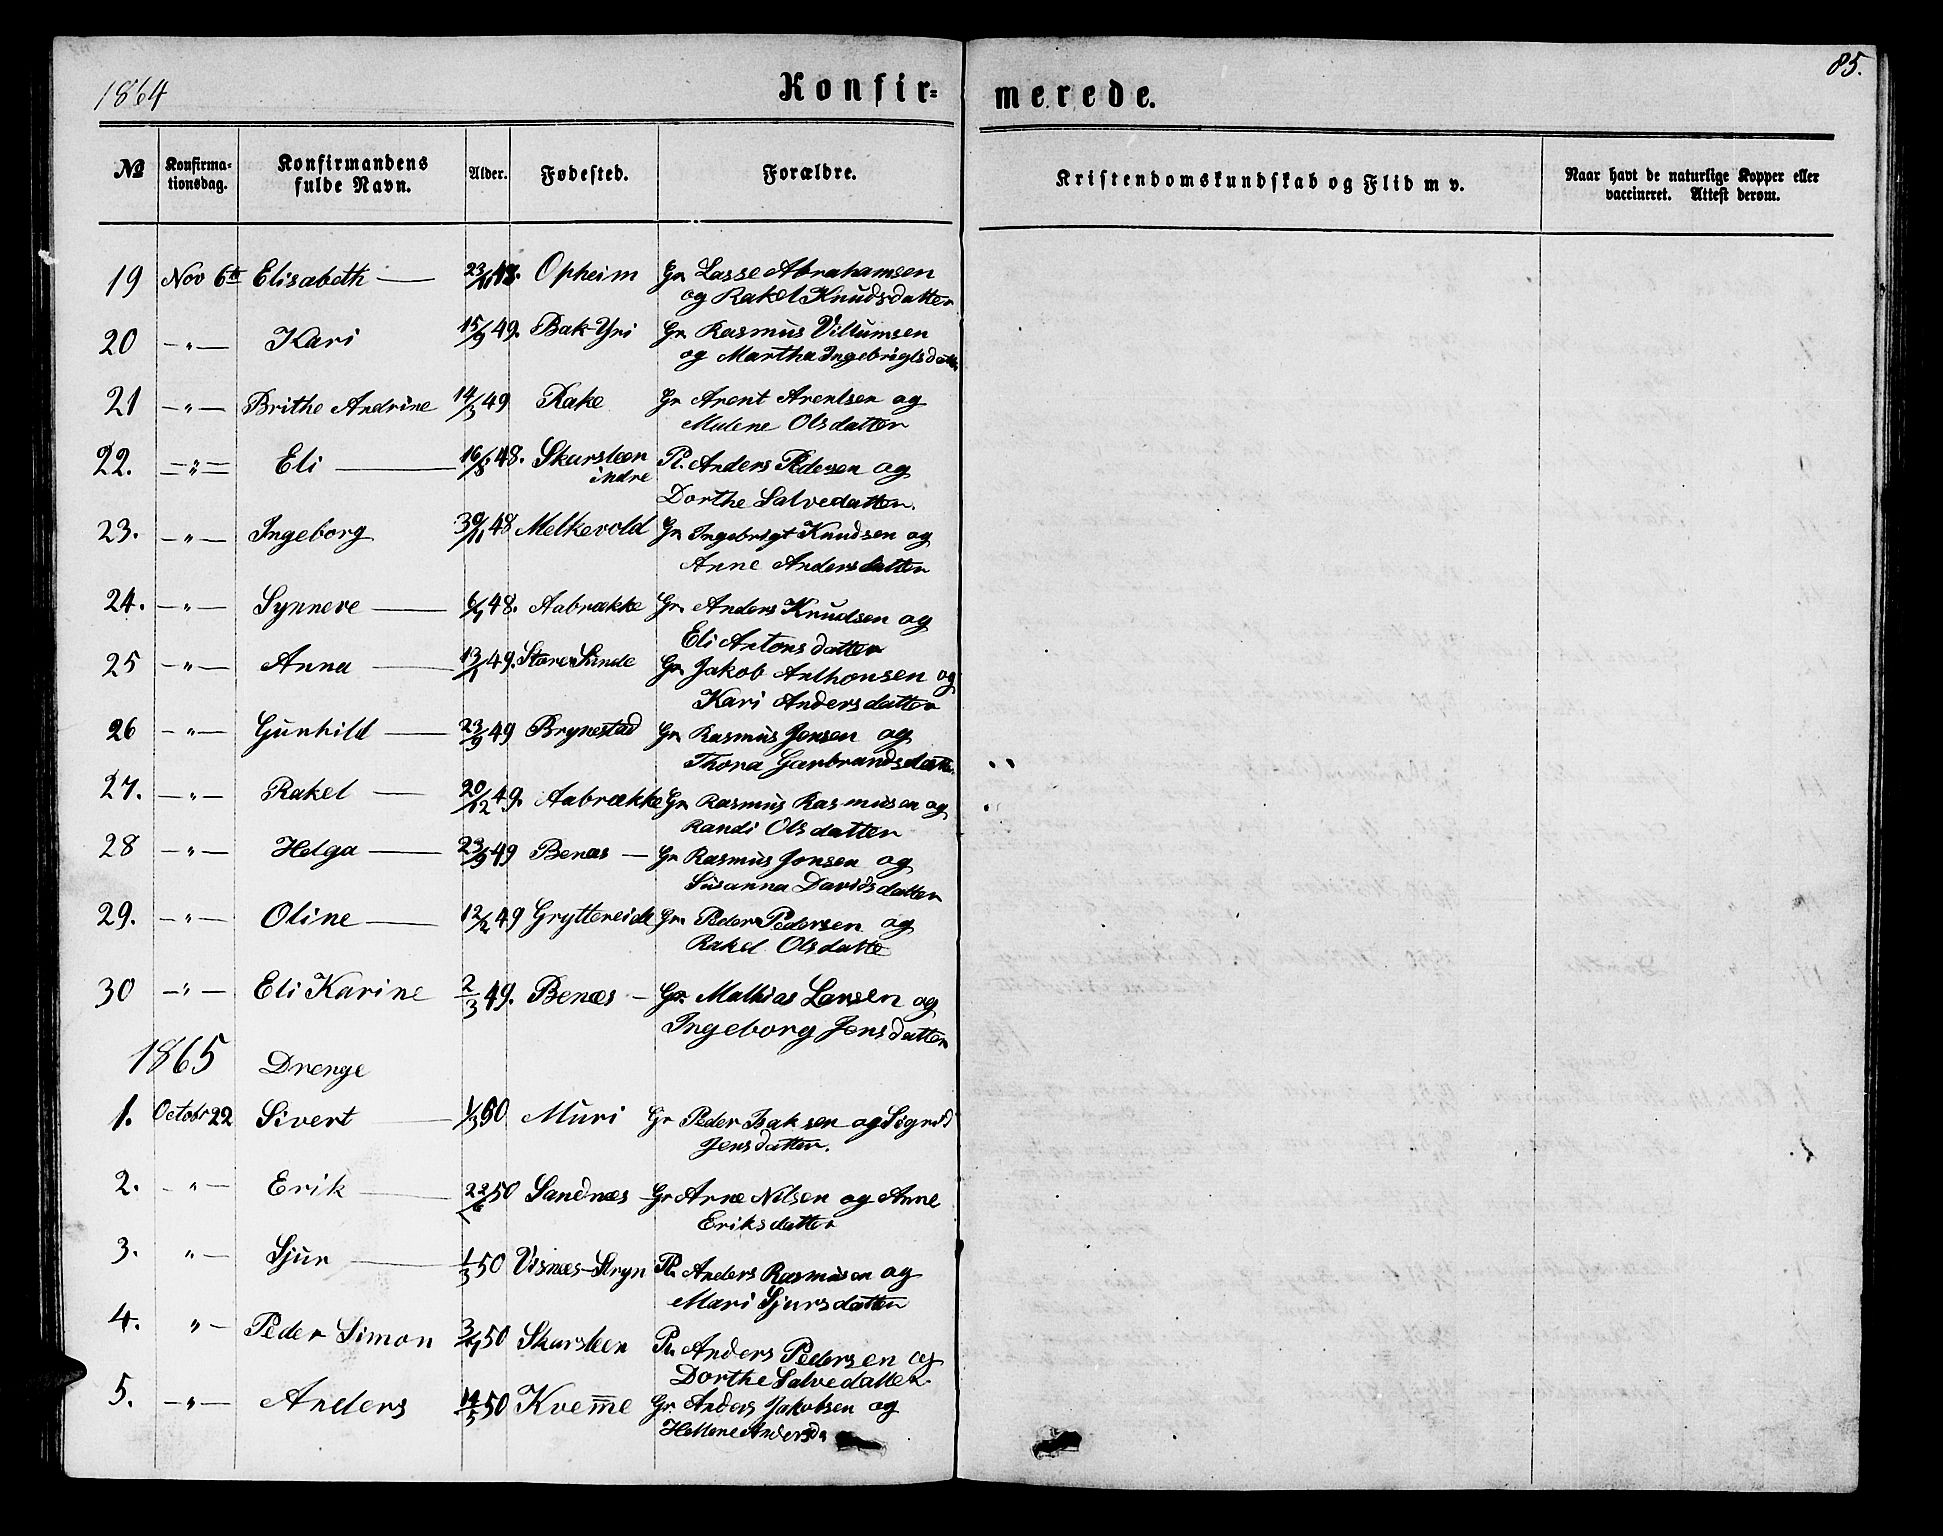 1864 Konfir- merede. 85.
№ Konfirma-tionsdag. Konfirmandens fulde Navn. Alder. Fødested. Forældre. Kristendomskundskab og Flid m v. Naar havt de naturlige Kopper eller vaccineret. Attest derom.
19 Nov 6te Elisabeth — 48. Opheim Gr. Lasse Abrahamsen
og Rakel Knudsdatter
20 —"— Kari 15/9 49. Bak Yri Gr Rasmus Villumsen
og Martha Ingebrigtsdatter
21 —"— Brithe Andrine 14/3 49 Rake Gr Arent Arentsen og
Malene Olsdatter
22. —"— Eli — 16/8 48. Skarsteen Pl. Anders Pedersen og
indre
Dorthe Salvedatter.
23. —"— Ingeborg 30/11 48 Melkevold Gr Ingebrigt Knudsen og
Anne Andersdatter
24. —"— Synneve — 48. Aabrække Gr. Anders Knudsen og
Eli Antonsdatter
25 —"— Anna — 13/1 49. Store Sunde Gr. Jakob Anthonsen og
Kari Andersdatter
26 —"— Gunhild — 23/9 49 Brynestad Gr. Rasmus Jonsen og
Thora Garbrandsdatter
27. —"— Rakel — 20/12 49. Aabrække Gr Rasmus Rasmusen og
Randi Olsdatter
28 —"— Helga — 23/9 49 Benæs — Gr Rasmus Jonsen og
Susanna Davidsdatter
29. —"— Oline — 12/2 49 Gryttereide Gr. Peder Pedersen og
Rakel Olsdatte
30 —"— Eli Karine 2/3 49. Benæs — Gr. Mathias Larsen og
Ingeborg Jensdatter
1865 Drenge
1. Octobr 22 Sivert — 1/3 50 Muri Gr Peder Baksen og Sigrid
Jensdatter.
2. —"— Erik — 22/6 50 Sandnæs — Gr Arne Nilsen og Anne
Eriksdatter
3. "— Sjur — 1/3 50 Visnæs-Stryn Pl. Anders Rasmusen og
Mari Sjursdatter
4. "— Peder Simon 50 Skarsteen Pl. Anders Pedersen og
Dorthe Salvedatter.
5. —"— Anders 14/5 50 Kveme Gr Anders Jakobsen og
Hellene Andersda